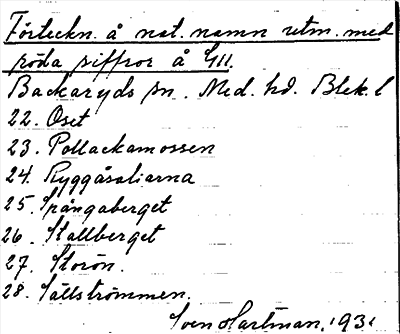 Förteckn. å nat. namn utm. med
röda siffror å G11.
Backaryds sn. Med. hd. Blek. l
22. Oset
23. Pollackamossen
24. Ryggåsaliarna
25. Spångaberget
26. Stallberget
27. Storön.
28. Sällströmmen.
Sven Hartman, 1931